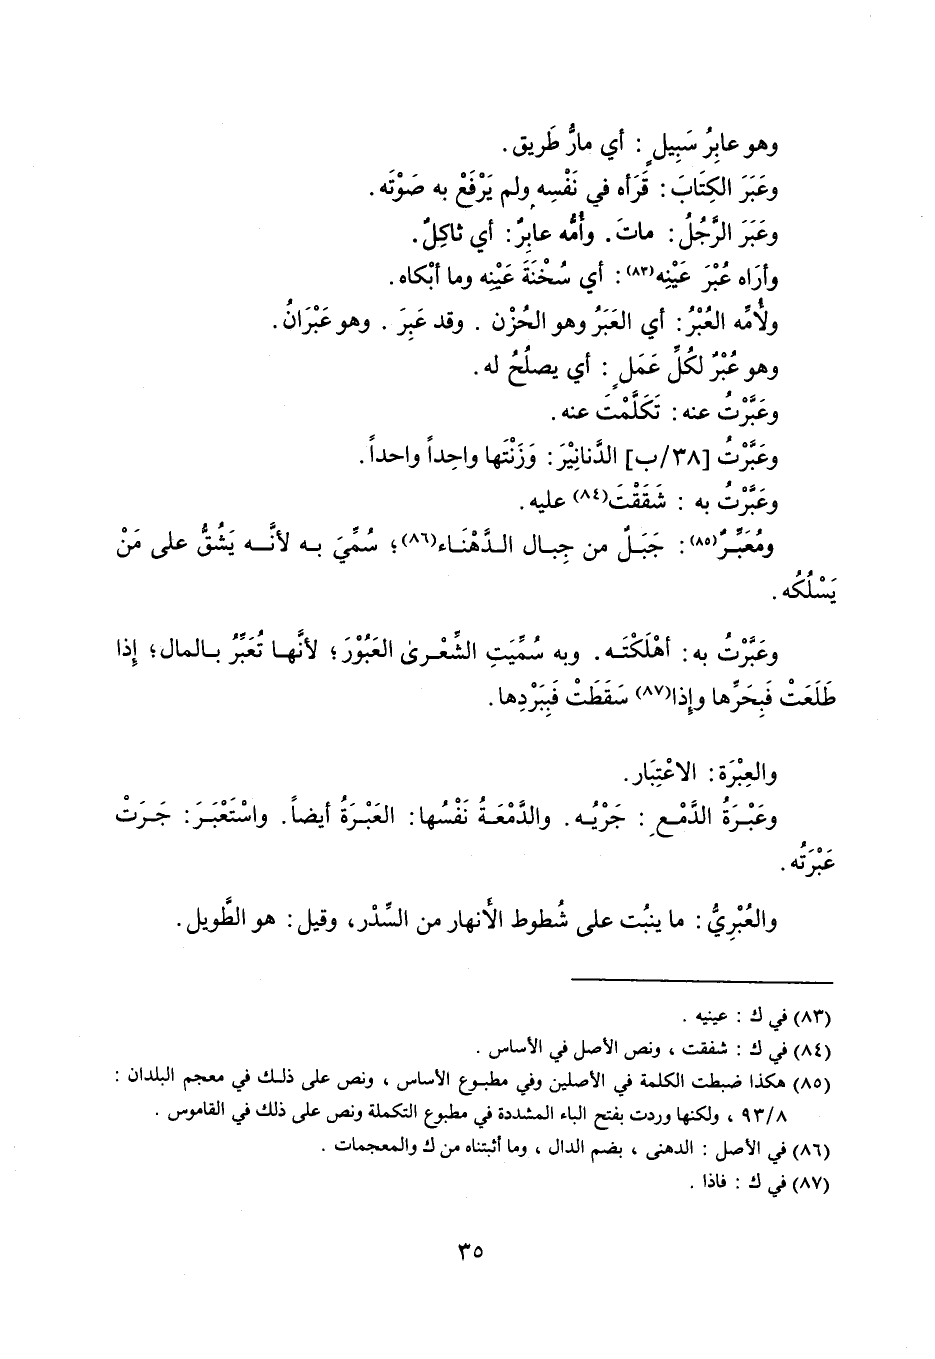 وهو عابِرُ سَبِيلٍ : أي مارُّ طَريق .
وعَبَرَ الكِتَابَ : قَرَأه في نَفْسِه ولم يَرْفَعْ به صَوْتَه .
وعَبَرَ الرَّجُلُ : ماتَ . وأُمُّه عابِرٌ : أي ثاكِلٌ .
وأرَاه عُبْرَ عَيْنِه(٨٣) : أي سُخْنَةَ عَيْنِه وما أبْكاه .
ولأُمِّه العُبْرُ : أي العَبَرُ وهو الحُزْن . وقد عَبِرَ . وهو عَبْرَانُ .
وهو عُبْرٌ لكُلِّ عَمَلٍ : أي يصلُحُ له .
وعَبَّرْتُ عنه : تَكَلَّمْتَ عنه .
وعَبَّرْتُ [٣٨/ب] الدَّنانِيْرَ : وَزَنْتَها واحِداً واحداً .
وعَبَّرْتُ به : شَقَقْتَ(٨٤) عليه .
ومُعَبِّرٌ(٨٥) : جَبَلٌ من جِبال الدَّهْنَاء(٨٦) ؛ سُمِّيَ به لأنَّه يَشُقُّ على مَنْ
يَسْلُكُه .
وعَبَّرْتُ به : أهْلَكْتَه . وبه سُمِّيَتِ الشِّعْرىٰ العَبُوْرَ ؛ لأنَّها تُعَبِّرُ بالمال ؛ إِذا
طَلَعَتْ فَبِحَرِّها وإِذا(٨٧) سَقَطَتْ فَبِبَرْدِها .
والعِبْرَة : الاعْتِبَار .
وعَبْرَةُ الدَّمْعِ : جَرْيُه . والدَّمْعَةُ نَفْسُها : العَبْرَةُ أيضاً . واسْتَعْبَرَ : جَرَتْ
عَبْرَتُه .
والعُبْرِيُّ : ما ينبُت على شُطوط الأنهار من السِّدْر ، وقيل : هو الطَّويل .
(٨٣) في ك : عينيه .
(٨٤) في ك : شفقت ، ونص الأصل في الأساس .
(٨٥) هكذا ضبطت الكلمة في الأصلين وفي مطبوع الأساس ، ونص على ذلك في معجم البلدان :
٩٣/٨ ، ولكنها وردت بفتح الباء المشددة في مطبوع التكملة ونص على ذلك في القاموس .
(٨٦) في الأصل : الدهنى ، بضم الدال ، وما أثبتناه من ك والمعجمات .
(٨٧) في ك : فاذا .
٣٥